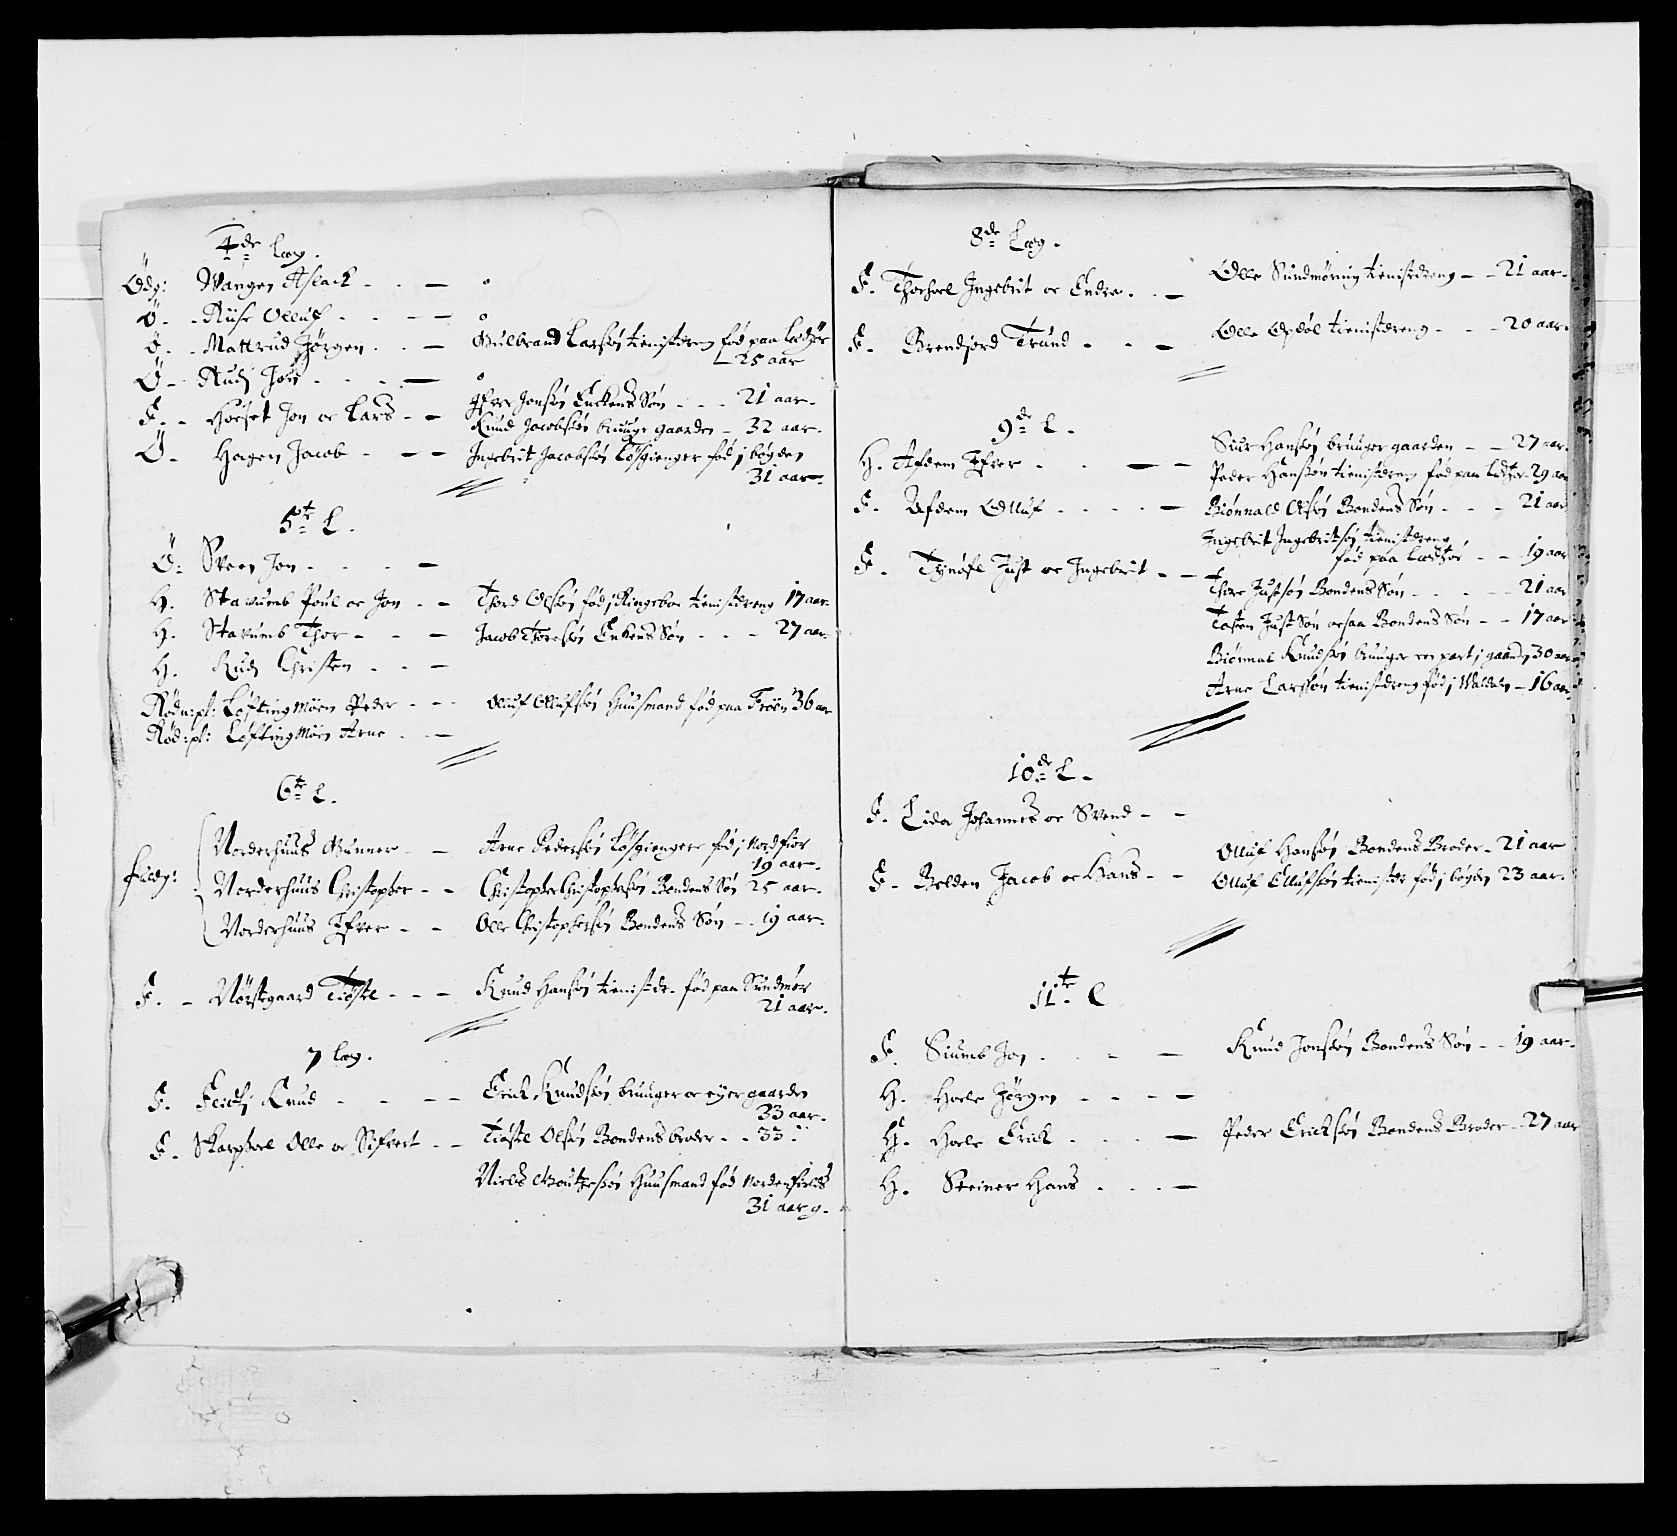 4de Læg.
Ödg: Wangen Aslack . . — o
Ö. . Riise Olluf . . . — o
Ö. . Mattrud Jörgen . . — Gulbrand Larsøn tienistdreng fød paa Ledsør
25 aar
Ö – Rudj Jon . . . — o
F. – Horset Jon oc Lars – – Ifver Jonsøn Enckens Søn . . . 21 aar.
Knud Jacobsøn bruuger gaarden – 32 aar.
Ö. Hagen Jacob . — — Ingebrit Jacobsøn Løsgienger fød j bøyden
31 aar.
5te L.
Ö. Sveen Jon . . . . —
H. Stavumb Poul oc Jon . – Thord Olsøn fød j Ringeboe tienistdreng 17 aar.
H. Stavumb Thor – . – – Jacob Thoresøn Enkens Søn . . . 27 aar.
H. Rudj Christen . . . —
Rödn:pl: Løfting Moen Peder – . . Oluf Ollufsøn Huusmand fød paa Fröen 36 aar
Rød:pl: Løfting Moen Arne . . —
6te L.
Norderhuus Gunner – – Arne Pedersøn Løsgienger fød j Nordfior
19 aar.
Fuldg: Norderhuus Christopher . – Christopher Christophersøn Bondens Søn 25 aar.
Norderhuus Ifver – – Olle Christophersøn Bondens Søn – . 19 aar.
F. – Nörstegaard Tiøstel . . – Knud Hansøn tienistdr. fød paa Sundmør
21 aar.
7 Læg.
F. Knud . . . – – Erick Knudsøn bruuger oc eyer gaarden
33 aar.
F. Skarphoel Olle oc Sifvert . – Tiøstel Olsøn Bondens broder . . 33 "
Niels Huusmand fød Nordenfields
31 aar g.
8de Læg.
F. Thorhoel Ingebrit oc Endre . . — Olle Sundmøring tienistdreng – – 21 aar.
F. Brendjord Trund . . . — Olle Opdøl tienistdreng . . . 20 aar.
9de L.
H. Afdem Ifver . . . — — Siur Hansøn bruuger gaarden – – 27 aar.
Peder Hansøn tienistdreng fød paa 29 aar
F. Afdem Olluf . . . . — Biønnald Olsøn Bondens Søn . . . 21 aar
Ingebrit Ingebritsøn tienistdreng
fød paa . – 19 aar
F. Just oc Ingebrit . – – Thore Justsøn Bondens Søn . . . – 21 aar
Tosten Just Søn ocsaa Bondens Søn – – 17 aar
Biønnal Knudsøn bruuger een part j gaarden 30 aar
Arne Larsøn tienistdreng fød j Waldals – 16 aar.
10de L.
F. Lida Johannes oc Svend – –
Olluf Hansøn Bondens Broder . 21 aar
F. Belden Jacob oc Hans – – Olluf Ollufsøn tienistdr fød j bøyden 23 aar.
11te L
F. Siumb Jon . . . — Knud Jonsøn Bondens Søn . . 19 aar.
H. Horle Jørgen . . . —
H. Horle Erick . . . — Peder Ericksøn Bondens Broder . 27 aar
H. Steiner Hans . . . —